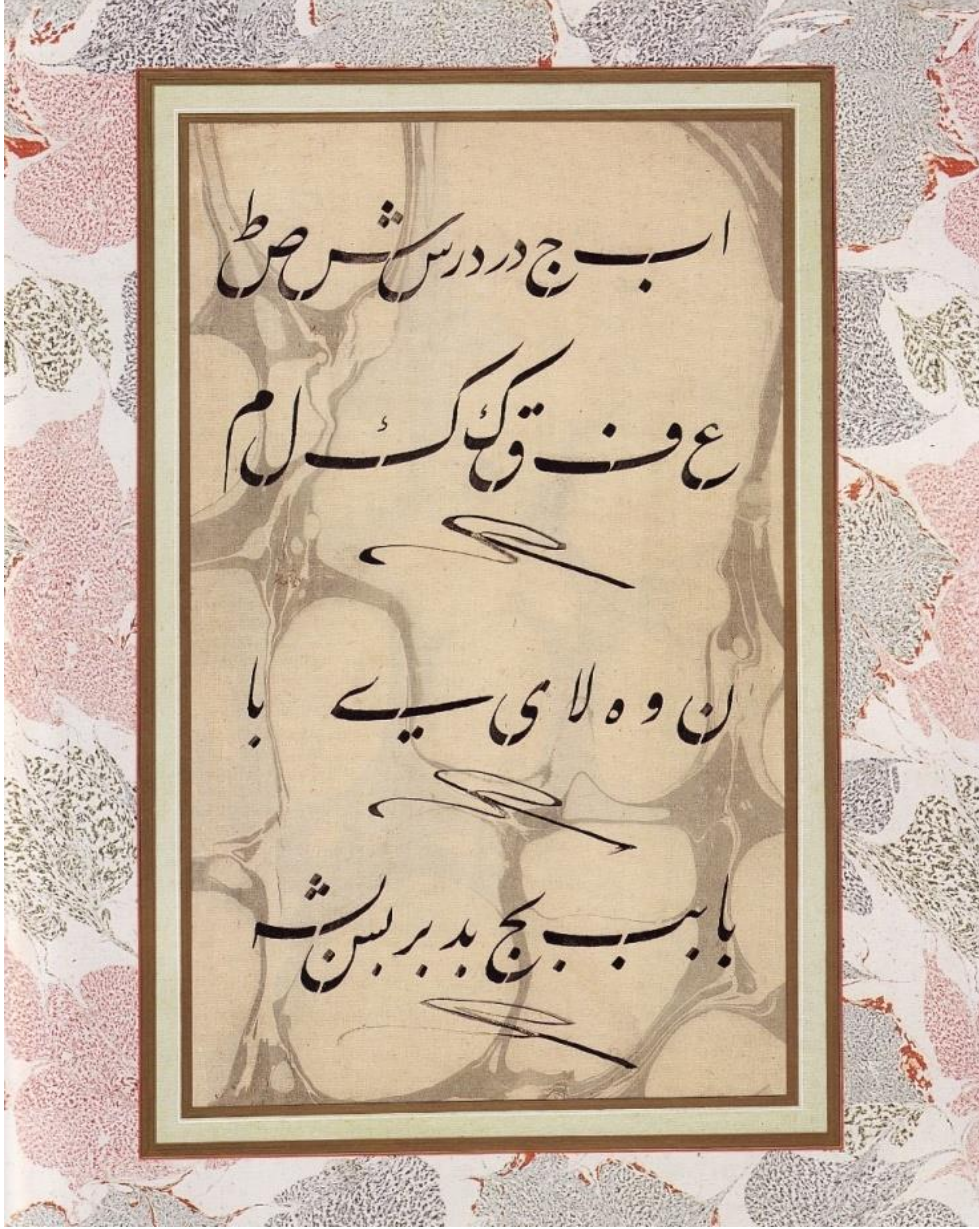 ا ب ج در د رس ش ص ط
ع ف ف ق ك ك ل م
ن و ه لا ى ے با
با بب بج بد بر بس بش